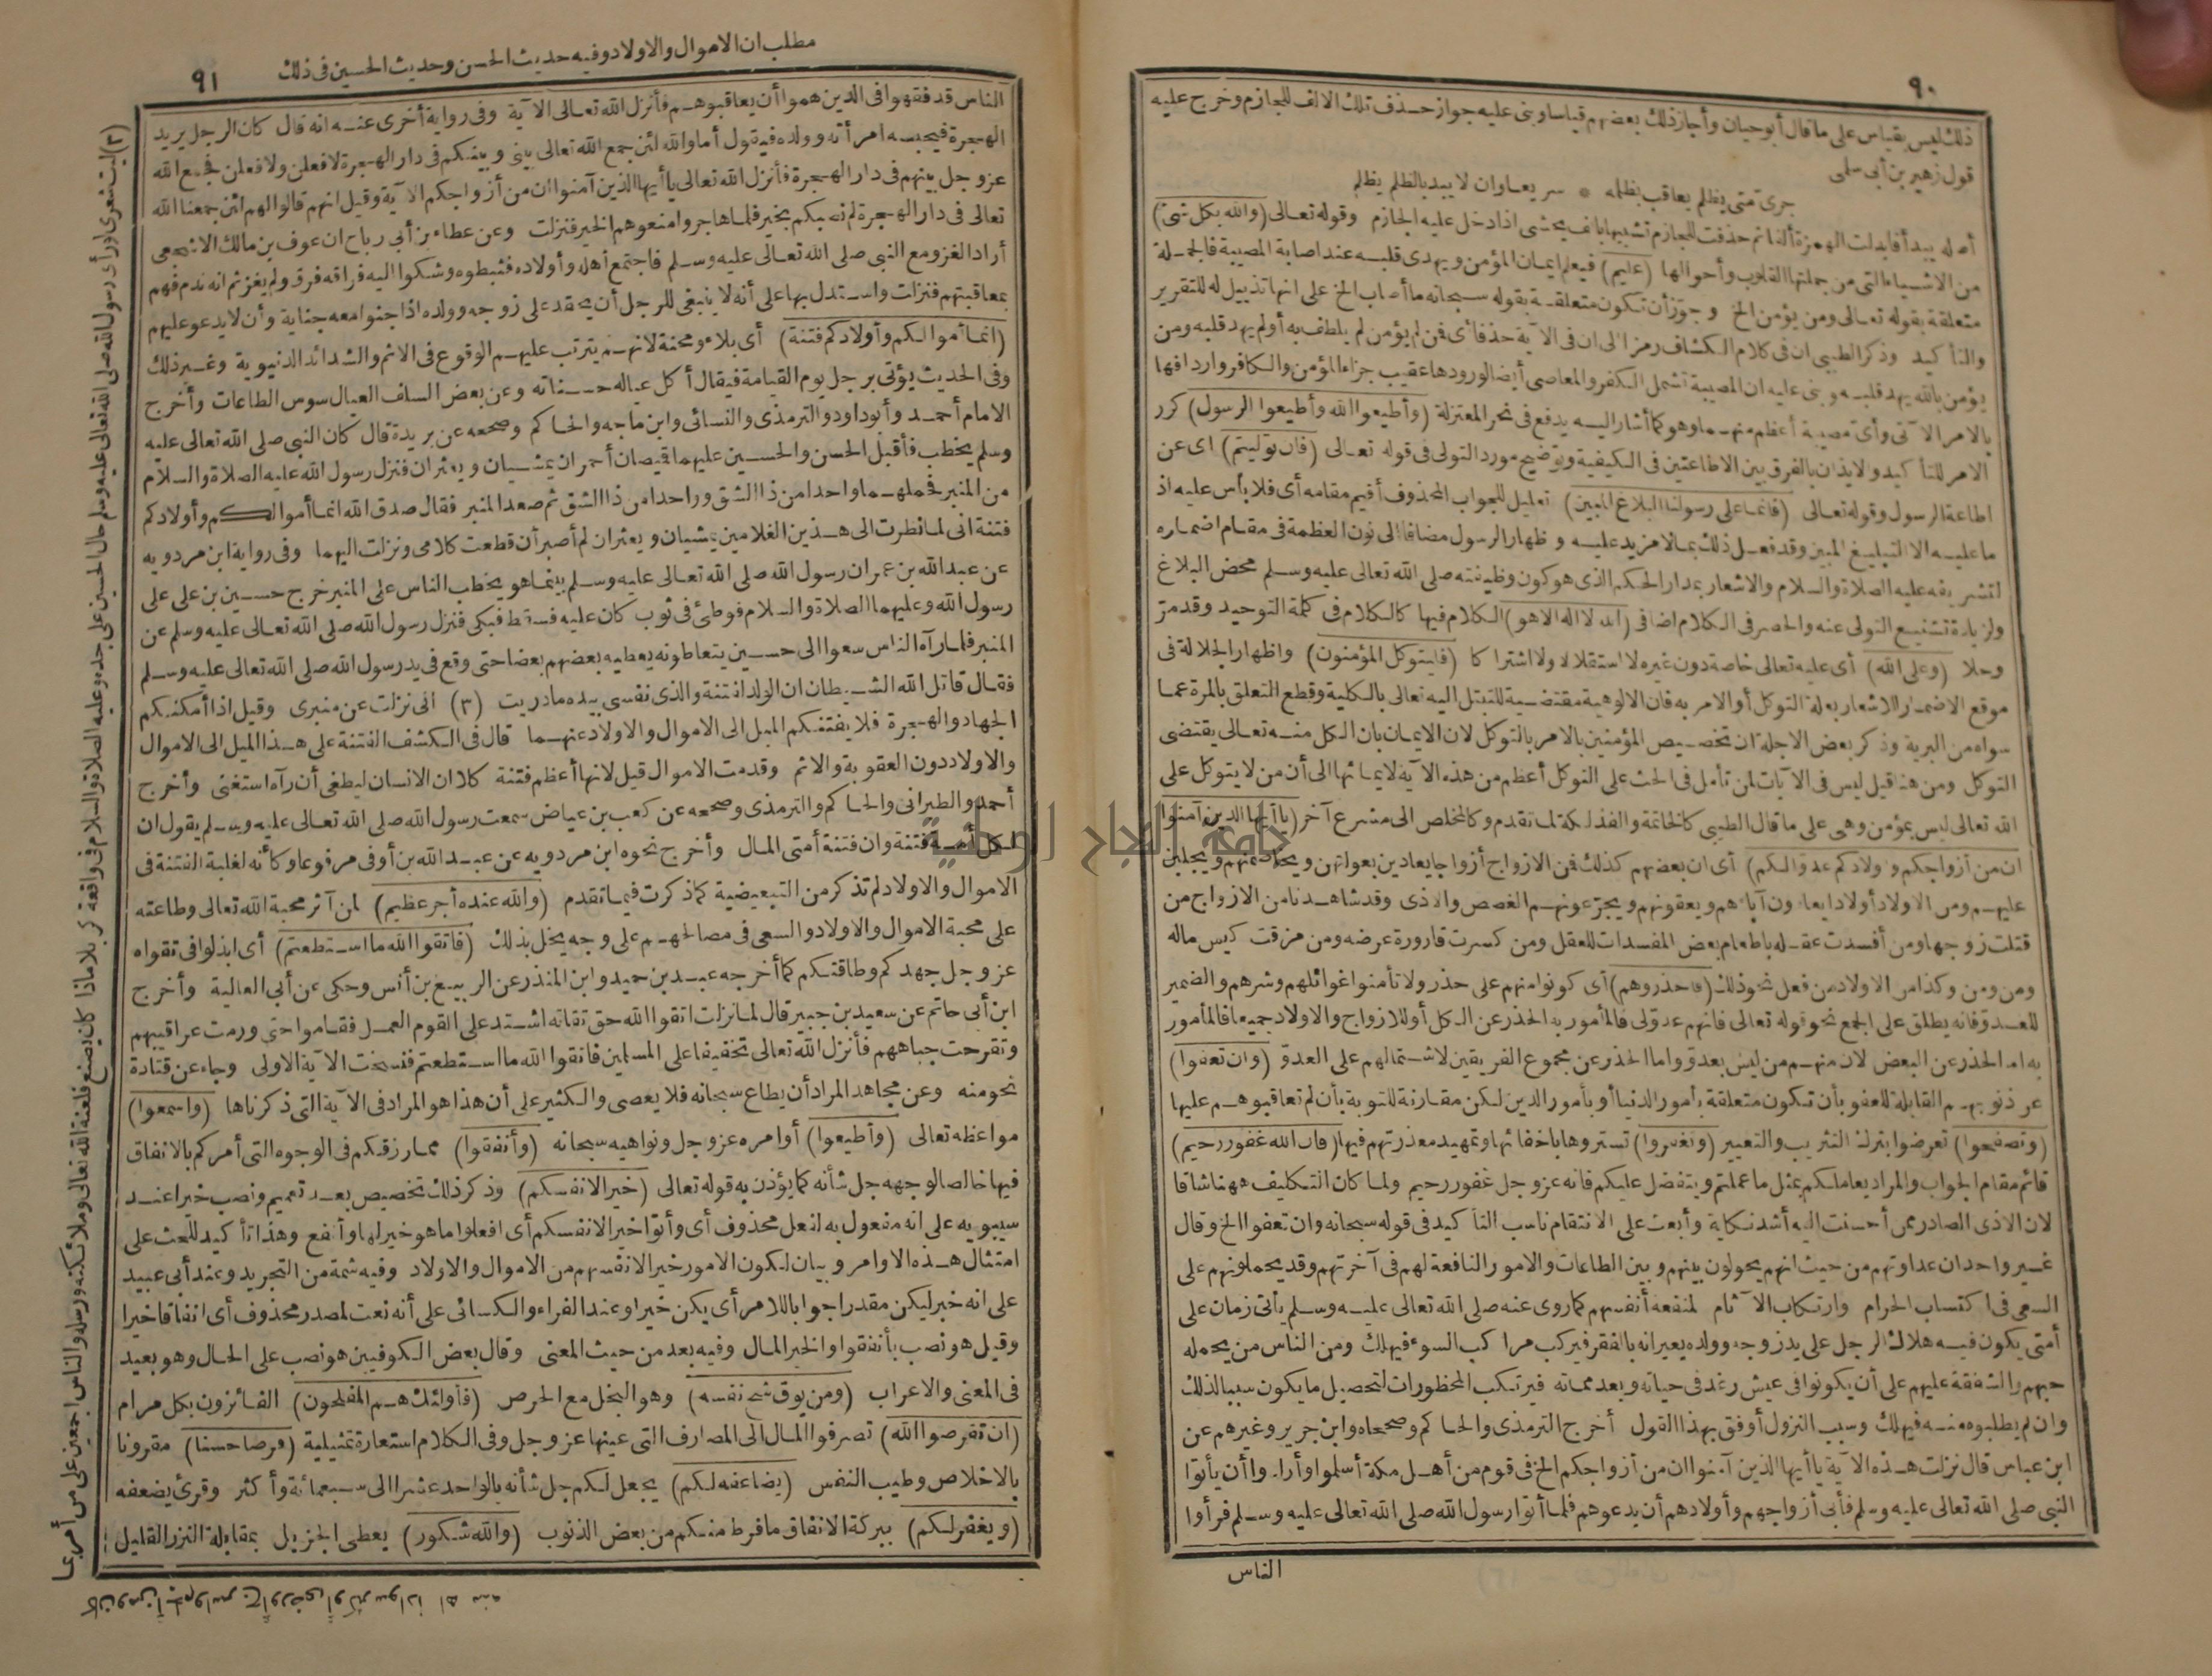 ٩٠
ذلك ليس بقياس على ما قال أبو حيان وأجاز ذلك بعضهم قياسا وبنى عليه جواز حذف تلك الالف للجازم وخرج عليه
قول زهير بن أبى سلمى
جرىء متى يظلم يعاقب بظلمه * سريعا وان لا يبد بالظلم يظلم
أصله يبدأ فابدلت الهمزة ألفا ثم حذفت للجازم تشبيها بألف يخشى اذا دخل عليه الجازم وقوله تعالى (والله بكل شئ)
من الاشياء التى من جملتها القلوب وأحوالها (عليم) فيعلم ايمان المؤمن ويهدى قلبه عند اصابة المصيبة فالجملة
متعلقة بقوله تعالى ومن يؤمن الخ وجوز أن تكون متعلقة بقوله سبحانه ما أصاب الخ على انها تذييل له للتقرير
والتأكيد وذكر الطيبى ان فى كلام الكشاف رمزا الى ان فى الآية حذفا أى فمن لم يؤمن لم يلطف به أو لم يهد قلبه ومن
يؤمن بالله يهد قلبه وبنى عليه ان المصيبة تشمل الكفر والمعاصى أيضا لورودها عقيب جزاء المؤمن والكافر واردافها
بالامر الآتى وأى مصيبة أعظم منهما وهو كما أشار اليه يدفع فى نحر المعتزلة (وأطيعوا الله وأطيعوا الرسول) كرر
الامر للتأكيد والايذان بالفرق بين الاطاعتين فى الكيفية وتوضيح مورد التولى فى قوله تعالى (فان توليتم) اى عن
اطاعة الرسول وقوله تعالى (فانما على رسولنا البلاغ المبين) تعليل للجواب المحذوف أقيم مقامه أى فلا بأس عليه اذ
ما عليه الا التبليغ المبين وقد فعل ذلك بما لا مزيد عليه واظهار الرسول مضافا الى نون العظمة فى مقام اضماره
لتشريفه عليه الصلاة والسلام والاشعار بمدار الحكم الذى هو كون وظيفته صلى الله تعالى عليه وسلم محض البلاغ
ولزيادة تشنيع التولى عنه والحصر فى الكلام اضافى (الله لا اله الا هو) الكلام فيها كالكلام فى كلمة التوحيد وقد مر
وحلا (وعلى الله) أى عليه تعالى خاصة دون غيره لا استقلالا ولا اشتراكا (فليتوكل المؤمنون) واظهار الجلالة فى
موقع الاضمار للاشعار بعلة التوكل أو الامر به فان الالوهية مقتضية للتبتل اليه تعالى بالكلية وقطع التعلق بالمرة عما
سواه من البرية وذكر بعض الاجلة ان تخصيص المؤمنين بالامر بالتوكل لان الايمان بان الكل منه تعالى يقتضى
التوكل ومن هنا قيل ليس فى الآيات لمن تأمل فى الحث على التوكل أعظم من هذه الآية لايمائها الى أن من لا يتوكل على
الله تعالى ليس بمؤمن وهى على ما قال الطيبى كالخاتمة والفذلكة لما تقدم وكالمخلص الى مشرع آخر (يا أيها الذين آمنوا
ان من أزواجكم وأولادكم عدوا لكم) أى ان بعضهم كذلك فمن الازواج أزواجا يعادين بعولتهن ويخاصمنهم ويجلبن
عليهم ومن الاولاد أولادا يعادون آباءهم ويعقونهم ويجرعونهم الغصص والاذى وقد شاهدنا من الازواج من
قتلت زوجها ومن أفسدت عقله باطعام بعض المفسدات للعقل ومن كسرت قارورة عرضه ومن مزقت كيس ماله
ومن ومن وكذا من الاولاد من فعل نحو ذلك (فاحذروهم) أى كونوا منهم على حذر ولا تأمنوا غوائلهم وشرهم والضمير
للعدو فانه يطلق على الجمع نحو قوله تعالى فانهم عدو لى فالمأمور به الحذر عن الكل أو للازواج والاولاد جميعا فالمأمور
به اما الحذر عن البعض لان منهم من ليس بعدو واما الحذر عن مجموع الفريقين لاشتمالهم على العدو (وان تعفوا)
عن ذنوبهم القابلة للعفو بأن تكون متعلقة بأمور الدنيا أو بأمور الدين لكن مقارنة للتوبة بأن لم تعاقبوهم عليها
(وتصفحوا) تعرضوا بترك التثريب والتعيير (وتغفروا) تستروها باخفائها وتمهيد معذرتهم فيها (فان الله غفور رحيم)
قائم مقام الجواب والمراد يعاملكم بمثل ما عملتم ويتفضل عليكم فانه عز وجل غفور رحيم ولما كان التكليف ههنا شاقا
لان الاذى الصادر ممن أحسنت اليه أشد نكاية وأبعث على الانتقام ناسب التأكيد فى قوله سبحانه وان تعفوا الخ وقال
غير واحد ان عداوتهم من حيث انهم يحولون بينهم وبين الطاعات والامور النافعة لهم فى آخرتهم وقد يحملونهم على
السعى فى اكتساب الحرام وارتكاب الآثام لمنفعة أنفسهم كما روى عنه صلى الله تعالى عليه وسلم يأتى زمان على
أمتى يكون فيه هلاك الرجل على يد زوجه وولده يعيرانه بالفقر فيركب مراكب السوء فيهلك ومن الناس من يحمله
حبهم والشفقة عليهم على أن يكونوا فى عيش رغد فى حياته وبعد مماته فيرتكب المحظورات لتحصيل ما يكون سببا لذلك
وان لم يطلبوه منه فيهلك وسبب النزول أوفق بهذا القول أخرج الترمذى والحاكم وصححاه وابن جرير وغيرهم عن
ابن عباس قال نزلت هذه الآية يا أيها الذين آمنوا ان من أزواجكم الخ فى قوم من أهل مكة أسلموا وأرادوا أن يأتوا
النبى صلى الله تعالى عليه وسلم فأبى أزواجهم وأولادهم أن يدعوهم فلما أتوا رسول الله صلى الله تعالى عليه وسلم فرأوا
الناس
مطلب ان الاموال والاولاد وفيه حديث الحسن وحديث الحسين فى ذلك ٩١
الناس قد فقهوا فى الدين هموا أن يعاقبوهم فأنزل الله تعالى الآية وفى رواية أخرى عنه انه قال كان الرجل يريد
الهجرة فيحبسه امرأته وولده فيقول أما والله لئن جمع الله تعالى بينى وبينكم فى دار الهجرة لافعلن ولافعلن فجمع الله
عز وجل بينهم فى دار الهجرة فأنزل الله تعالى يا أيها الذين آمنوا ان من أزواجكم الآية وقيل انهم قالوا لهم لئن جمعنا الله
تعالى فى دار الهجرة لم نصبكم بخير فلما هاجروا منعوهم الخير فنزلت وعن عطاء بن أبى رباح ان عوف بن مالك الاشجعى
أراد الغزو مع النبى صلى الله تعالى عليه وسلم فاجتمع أهله وأولاده فثبطوه وشكوا اليه فراقه فرق ولم يغز ثم انه ندم فهم
بمعاقبتهم فنزلت واستدل بها على أنه لا ينبغى للرجل أن يحقد على زوجه وولده اذا جنوا معه جناية وأن لا يدعو عليهم
(انما أموالكم وأولادكم فتنة) أى بلاء ومحنة لانهم يترتب عليهم الوقوع فى الاثم والشدائد الدنيوية وغير ذلك
وفى الحديث يؤتى برجل يوم القيامة فيقال أكل عياله حسناته وعن بعض السلف العيال سوس الطاعات وأخرج
الامام أحمد وأبو داود والترمذى والنسائى وابن ماجه والحاكم وصححه عن بريدة قال كان النبى صلى الله تعالى عليه
وسلم يخطب فأقبل الحسن والحسين عليهما قميصان أحمران يمشيان ويعثران فنزل رسول الله عليه الصلاة والسلام
من المنبر فحملهما واحدا من ذا الشق وواحدا من ذا الشق ثم صعد المنبر فقال صدق الله انما أموالكم وأولادكم
فتنة انى لما نظرت الى هذين الغلامين يمشيان ويعثران لم أصبر أن قطعت كلامى ونزلت اليهما وفى رواية ابن مردويه
عن عبد الله بن عمر ان رسول الله صلى الله تعالى عليه وسلم بينما هو يخطب الناس على المنبر خرج حسين بن على على
رسول الله وعليهما الصلاة والسلام فوطئ فى ثوب كان عليه فسقط فبكى فنزل رسول الله صلى الله تعالى عليه وسلم عن
المنبر فلما رآه الناس سعوا الى حسين يتعاطونه يعطيه بعضهم بعضا حتى وقع فى يد رسول الله صلى الله تعالى عليه وسلم
فقال قاتل الله الشيطان ان الولد لفتنة والذى نفسى بيده ما دريت (٣) انى نزلت عن منبرى وقيل اذا أمكنكم
الجهاد والهجرة فلا يفتنكم الميل الى الاموال والاولاد عنهما قال فى الكشف الفتنة على هذا الميل الى الاموال
والاولاد دون العقوبة والاثم وقدمت الاموال قيل لانها أعظم فتنة كلا ان الانسان ليطغى أن رآه استغنى وأخرج
أحمد والطبرانى والحاكم والترمذى وصححه عن كعب بن عياض سمعت رسول الله صلى الله تعالى عليه وسلم يقول ان
لكل أمة فتنة وان فتنة أمتى المال وأخرج نحوه ابن مردويه عن عبد الله بن أوفى مرفوعا وكأنه لغلبة الفتنة فى
الاموال والاولاد لم تذكر من التبعيضية كما ذكرت فيما تقدم (والله عنده أجر عظيم) لمن آثر محبة الله تعالى وطاعته
على محبة الاموال والاولاد والسعى فى مصالحهم على وجه يخل بذلك (فاتقوا الله ما استطعتم) أى ابذلوا فى تقواه
عز وجل جهدكم وطاقتكم كما أخرجه عبد بن حميد وابن المنذر عن الربيع بن أنس وحكى عن أبى العالية وأخرج
ابن أبى حاتم عن سعيد بن جبير قال لما نزلت اتقوا الله حق تقاته اشتد على القوم العمل فقاموا حتى ورمت عراقيبهم
وتقرحت جباههم فأنزل الله تعالى تخفيفا على المسلمين فاتقوا الله ما استطعتم فنسخت الآية الاولى وجاء عن قتادة
نحو منه وعن مجاهد المراد أن يطاع سبحانه فلا يعصى والكثير على أن هذا هو المراد فى الآية التى ذكرناها (واسمعوا)
مواعظه تعالى (وأطيعوا) أوامره عز وجل ونواهيه سبحانه (وأنفقوا) مما رزقكم فى الوجوه التى أمركم بالانفاق
فيها خالصا لوجهه جل شأنه كما يؤذن به قوله تعالى (خيرا لانفسكم) وذكر ذلك تخصيص بعد تعميم ونصب خيرا عند
سيبويه على انه مفعول به لفعل محذوف أى وأتوا خيرا لانفسكم أى افعلوا ما هو خير لها وأنفع وهذا تأكيد للحث على
امتثال هذه الاوامر وبيان لكون الامور خيرا لانفسهم من الاموال والاولاد وفيه شمة من التجريد وعند أبى عبيد
على انه خبر ليكن مقدرا جوابا للامر أى يكن خيرا وعند الفراء والكسائى على أنه نعت لمصدر محذوف أى انفاقا خيرا
وقيل هو نصب بأنفقوا والخير المال وفيه بعد من حيث المعنى وقال بعض الكوفيين هو نصب على الحال وهو بعيد
فى المعنى والاعراب (ومن يوق شح نفسه) وهو البخل مع الحرص (فأولئك هم المفلحون) الفائزون بكل مرام
(ان تقرضوا الله) تصرفوا المال الى المصارف التى عينها عز وجل وفى الكلام استعارة تمثيلية (قرضا حسنا) مقرونا
بالاخلاص وطيب النفس (يضاعفه لكم) يجعل لكم جل شأنه بالواحد عشرا الى سبعمائة وأكثر وقرئ يضعفه
(ويغفر لكم) ببركة الانفاق ما فرط منكم من بعض الذنوب (والله شكور) يعطى الجزيل بمقابلة النزر القليل
(٣) ليت شعرى لو رأى رسول الله صلى الله تعالى عليه وسلم حال الحسين على جده وعليه الصلاة والسلام فى واقعة كربلا ماذا كان يصنع فلعنة الله تعالى وملائكته ورسله والناس اجمعين على من أمر بما
كان ومن ألجم وأسرج أو رضى أو كثر سوادا اه منه
جامعة النجاح الوطنية